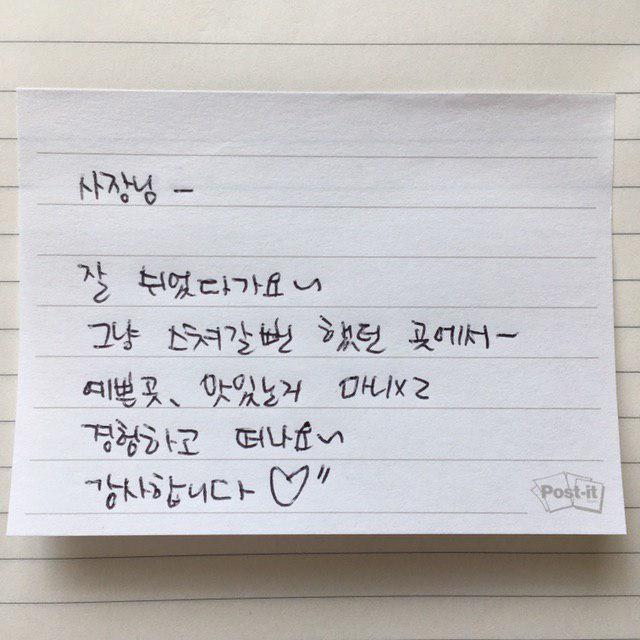 사장님 -
잘 쉬었다가요~
그냥 스쳐갈뻔 했던 곳에서~
예쁜곳, 맛있는거 마니x2
경험하고 떠나요~
감사합니다 ♡"
Post-it